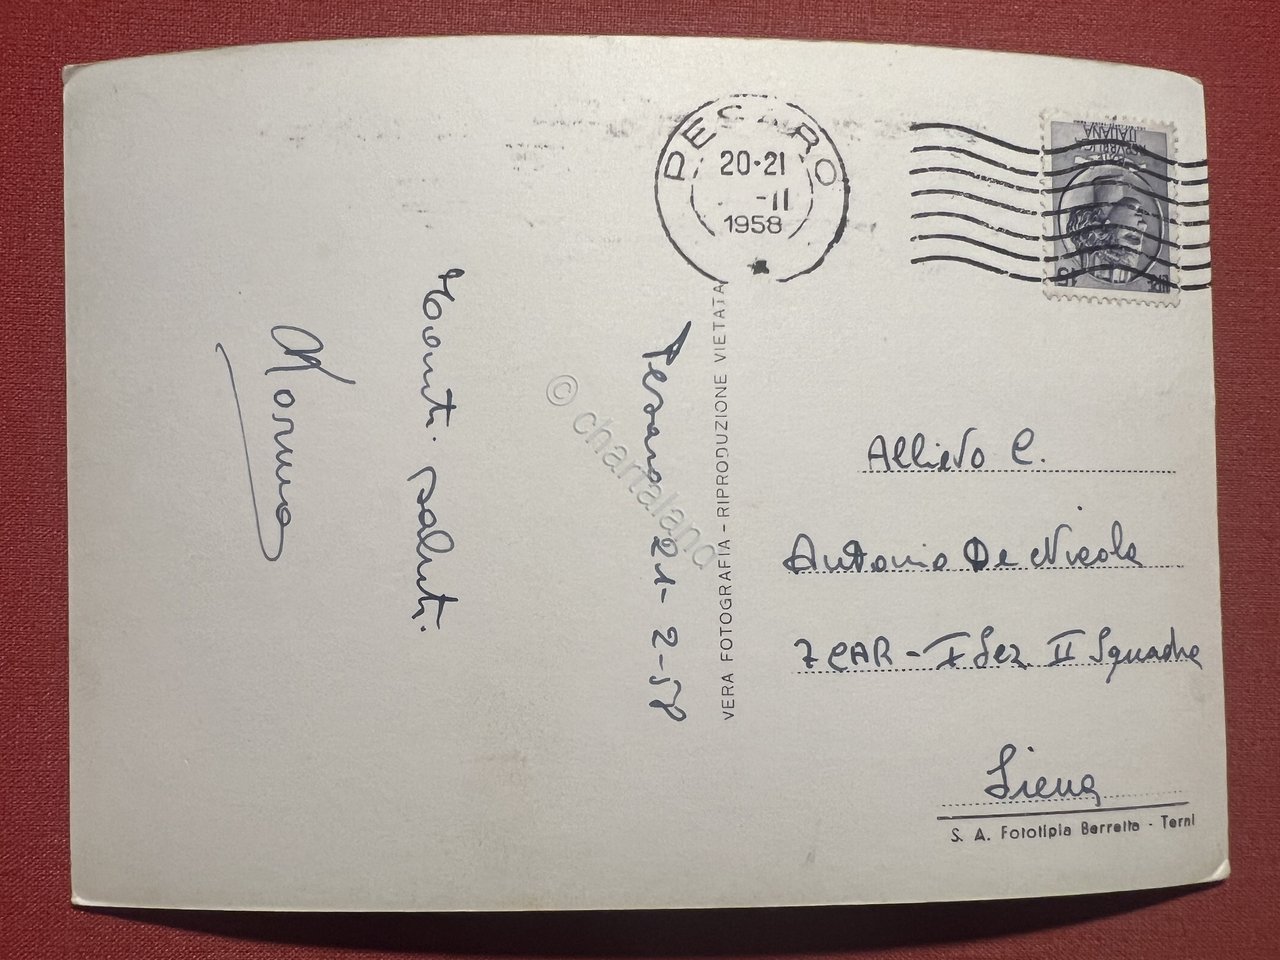 PESARO
20·21
-II
1958
REPVBBLICA
ITALIANA
LIRE 15
Pesaro 21-2-58
Tanti saluti.
VERA FOTOGRAFIA - RIPRODUZIONE VIETATA
© chartaland
Allievo C.
Antonio De Nicola
7 CAR - I Sez II Squadra
Siena
S. A. Fototipia Berretta - Terni